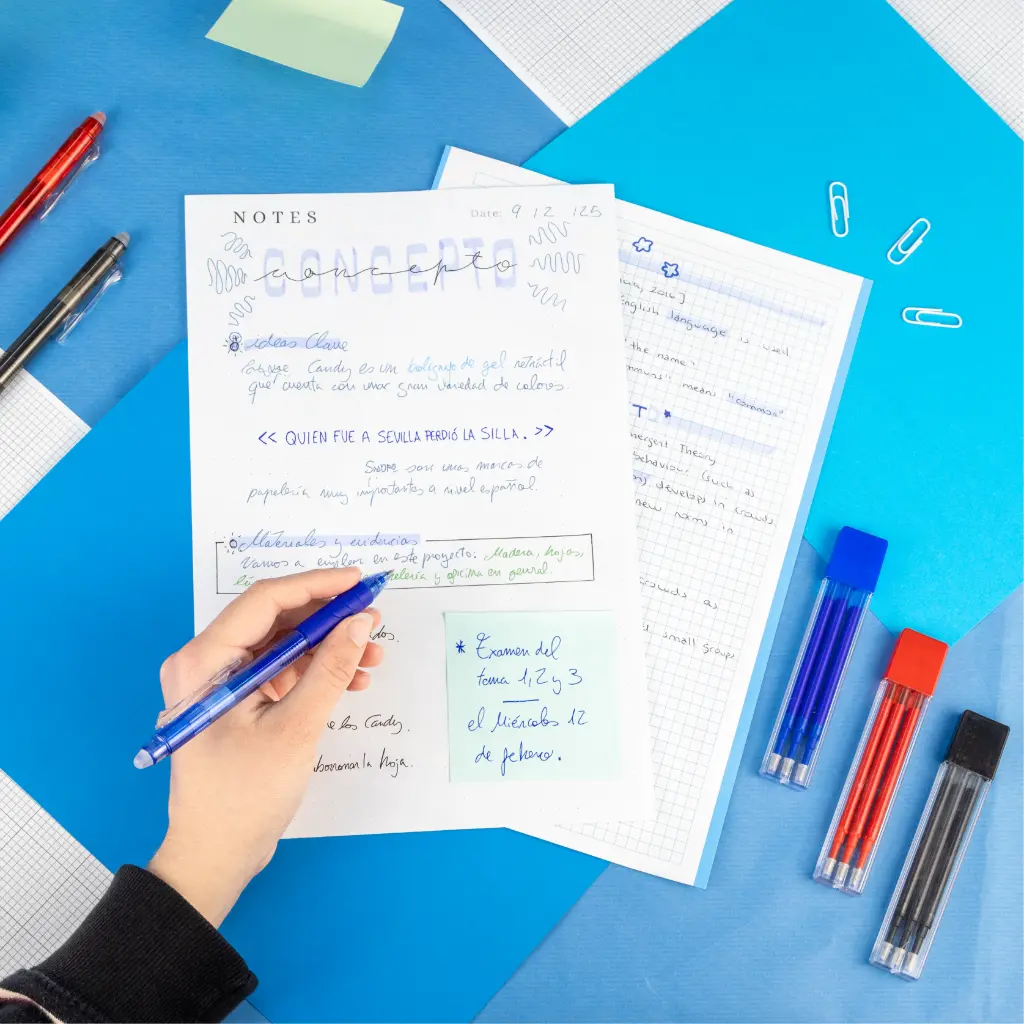 NOTES
Date: 9 12 125
CONCEPTO
concepto
ideas Clave
Candy es un bolígrafo de gel retráctil
que cuenta con una gran variedad de colores.
<< QUIEN FUE A SEVILLA PERDIÓ LA SILLA. >>
son unas marcas de
papelería muy importantes a nivel español.
Materiales y evidencias
Vamos a emplear en este proyecto: Madera, hojas,
y oficina en general.
los Candy.
la hoja.
* Examen del
tema 1, 2 y 3
el Miércoles 12
de febrero.
2016]
English language is used
the name?
means "common"
T
mergent Theory
behaviour (such as
develops in crowds
new norms in
crowds as
small groups